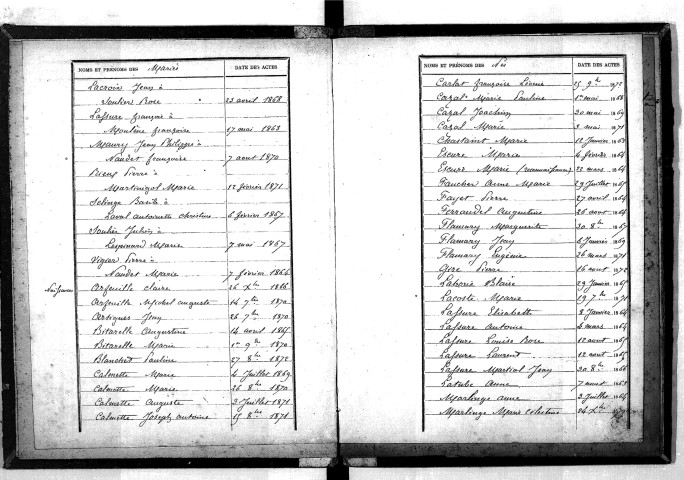 NOMS ET PRÉNOMS DES Mariés DATE DES ACTES
Lacroix Jean à
Soulier Rose 23 avril 1868
Lassure françois à
Mouline françoise 17 mai 1868
Maury Jean Philippe à
Naudet françoise 7 aout 1870
Pierre à
Martinizol Marie 12 février 1871
Basile à
Laval antoinette christine 6 février 1867
Soulié Julien à
Marie 7 mai 1867
Vigier Pierre à
Naudet Marie 7 février 1866
Naissances
Arfeuille claire 26 Xbre 1866
Arfeuille Michel auguste 14 7bre 1870
Artigues Jean 26 7bre 1870
Bitarelle Augustine 14 avril 1865
Bitarelle Marie 1er 9bre 1870
Blanchet Pauline 27 8bre 1872
Calmette Marie 4 Juillet 1869
Calmette Marie 26 8bre 1870
Calmette Auguste 3 Juillet 1871
Calmette Joseph antoine 15 8bre 1871
NOMS ET PRÉNOMS DES Nés DATE DES ACTES
Carlat françoise 25 9bre 1872
Cazal Marie Pauline 1er mai 1868
Cazal Joachim 30 mai 1869
Cazal Marie 3 mai 1871
Chastaint Marie 12 Janvier 1863
Escure Marie 4 février 1864
Escure Marie 22 mars 1864
Faucher Anne Marie 29 Juillet 1865
Fayet Pierre 27 avril 1864
Ferrandel Augustine 26 aout 1864
Flamary Marguerite 30 8bre 1867
Flamary Jean 6 Janvier 1869
Flamary Eugénie 26 mars 1871
Gire Pierre 16 aout 1872
Laborie Blaise 29 Janvier 1867
Lacoste Marie 19 7bre 1871
Lassure Elisabeth 8 Janvier 1864
Lassure Antoine 4 mars 1864
Lassure Louise Rose 12 aout 1865
Lassure Laurent 12 aout 1865
Lassure Martial Jean 30 8bre 1866
Latube Anne 7 aout 1868
Marlinge anne 3 Juillet 1864
Marlinge Marie celestine 24 Xbre